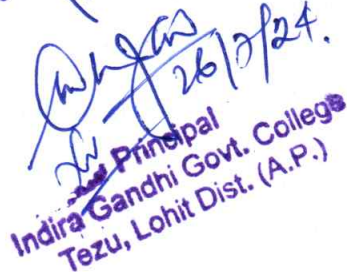 26/7/24.
Principal
Indira Gandhi Govt. College
Tezu, Lohit Dist. (A.P.)